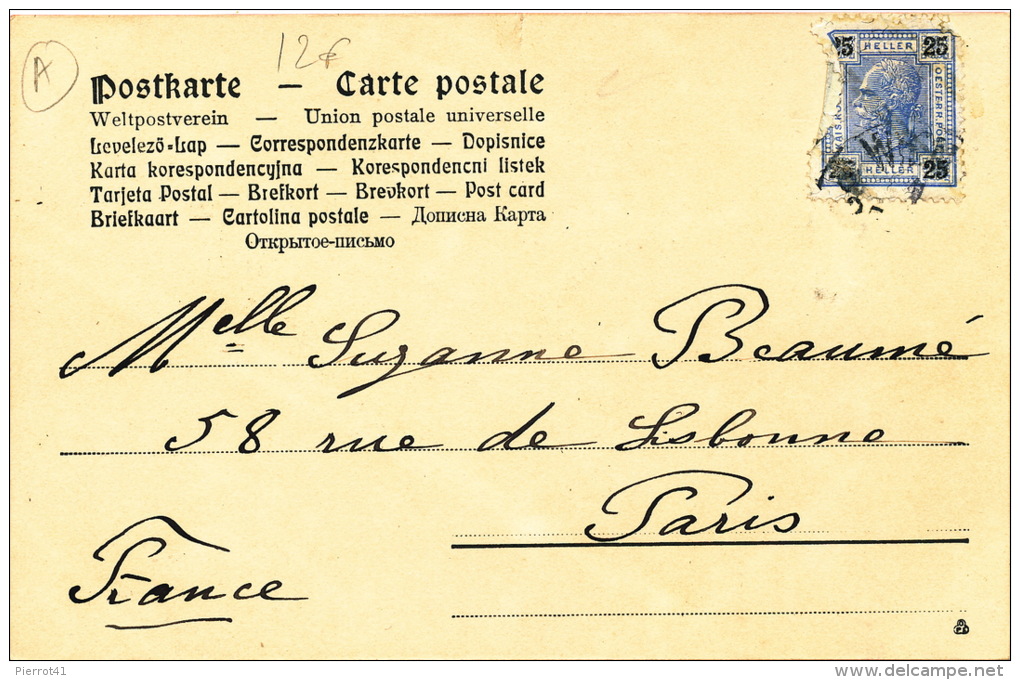 A
12€
Postkarte — Carte postale
Weltpostverein — Union postale universelle
Levelező-Lap — Correspondenzkarte — Dopisnice
Karta korespondencyjna — Korespondencni listek
Tarjeta Postal — Brefkort — Brevkort — Post card
Briefkaart — Cartolina postale — Дописна Карта
Открытое-письмо
25 HELLER 25
OESTERR.POST
25 HELLER 25
Melle Suzanne Beaumé
58 rue de Lisbonne
Paris
France
Pierrot41
www.delcampe.net